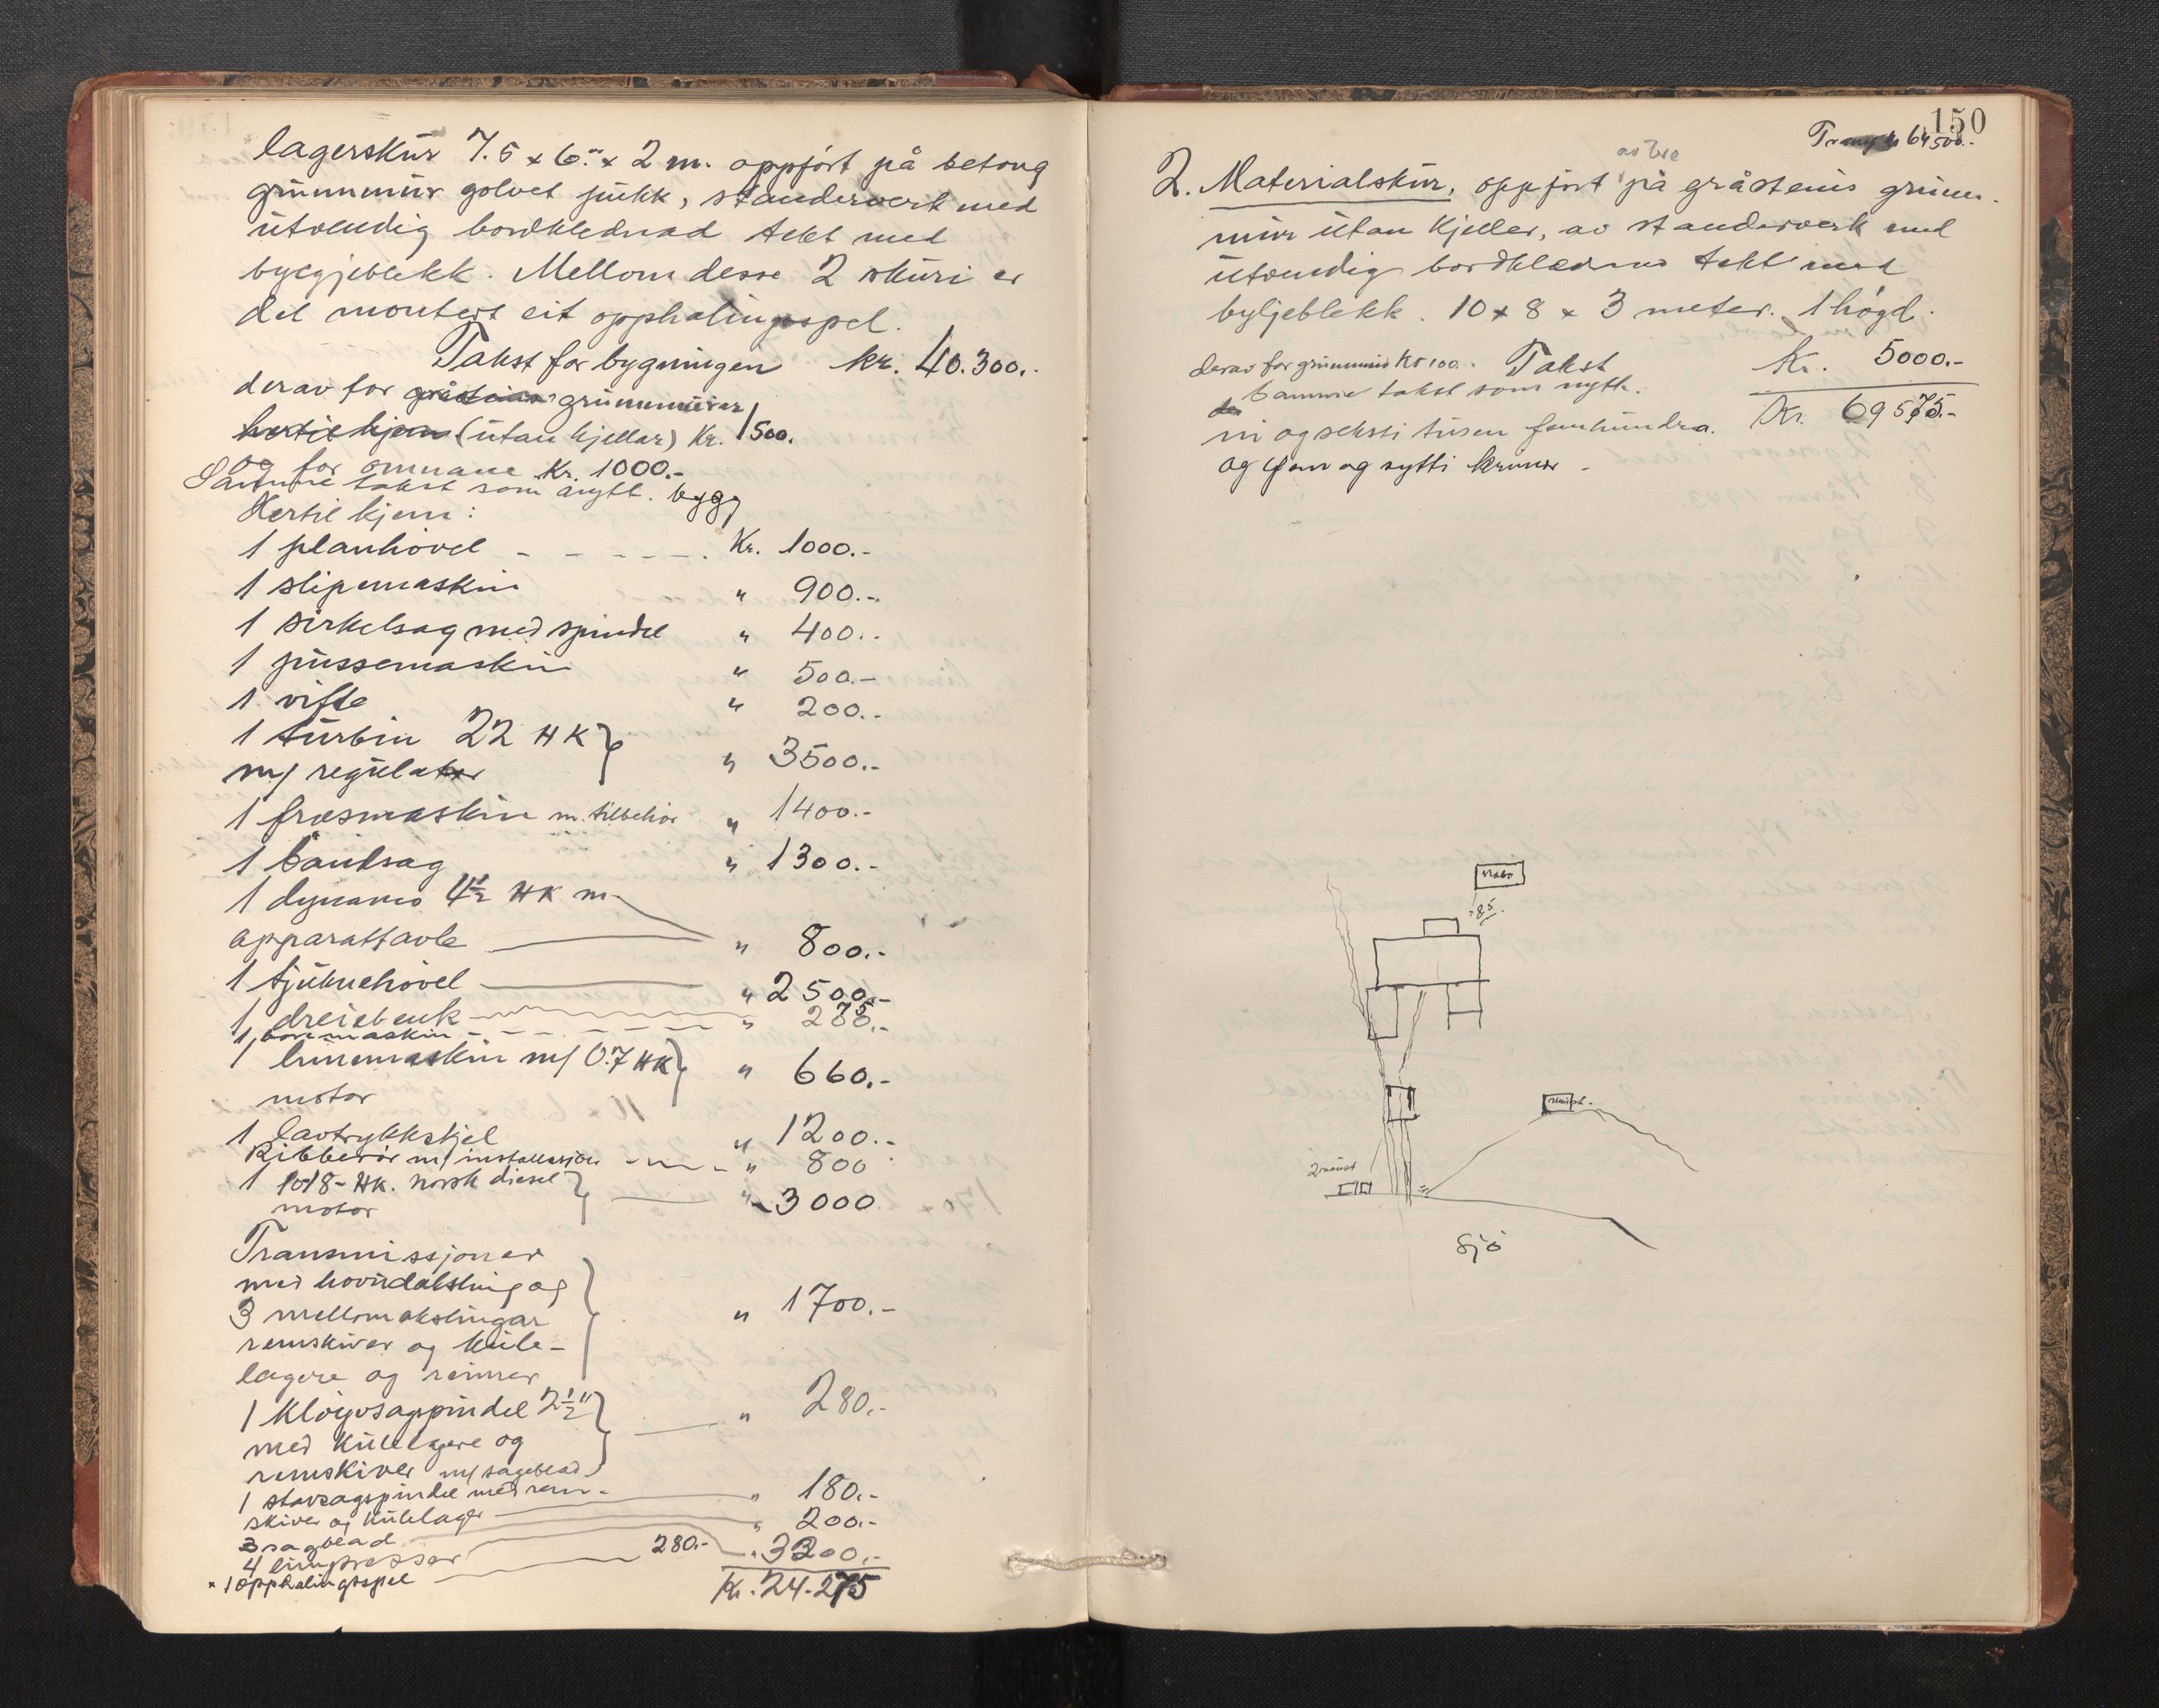 lagerskur 7.5 x 6.- x 2 m. oppført på betong
grunnmur golvet pukk, standerverk med
utvendig bordklednad tekt med
bylgjeblekk. Mellom desse 2 skuri er
det montert eit opphalingsspel.
Takst for bygningen kr. 40.300.-
derav for gråsteins grunnmurer
hertil kjem (utan kjellar) Kr. 1500.
og for omnane Kr. 1000.-
Samme takst som nytt. bygg
Hertil kjem:
1 planhövel - - - - - . Kr. 1000.-
1 slipemaskin " 900.-
1 sirkelsag med spindel " 400.-
1 pussemaskin " 500.-
1 vifte " 200.-
1 turbin 22 HK
m/ regulator " 3500.-
1 fræsmaskin m. tilbehör " 1400.-
1 bandsag " 1300.-
1 dynamo 4½ HK m.
apparattavle " 800.-
1 tjuknehövel " 2500.-
1 dreiebenk " 275.-
1 boremaskin - - - - - -
1 limemaskin m/ 0.7 HK " 660.-
motor
1 lavtrykkskjel " 1200.-
Ribberör m/ installasjon - - - " 800
1 HK. norsk diesel
motor " 3000
Transmissjoner
med hovudaksling og
3 mellomakslingar " 1700.-
remskiver og kule-
lagere og reimer
1 klöyvsagspindel 2½" " 280.-
med kulelagere og
remskiver m/ sageblad
1 stavsagspindel med rem- " 180.-
skiver og kulelager " 200.-
3 sagblad
4 limpresser 280.- " 3200.-
x 1 opphalingsspel
Kr. 24.275
150
64500.-
av tre
2. Materialskur, oppført på gråsteins grunn-
mur utan kjeller, av standerverk med
utvendig bordklednad tekt med
byljeblekk. 10 x 8 x 3 meter. 1 högd.
derav for grunnmur Kr 100.- Takst Kr. 5000.-
Samme takst som nytt.
ni og seksti tusen femhundra. Kr. 69575.-
og fem og sytti kroner -
Nabo
85.
2 naust
Sjö